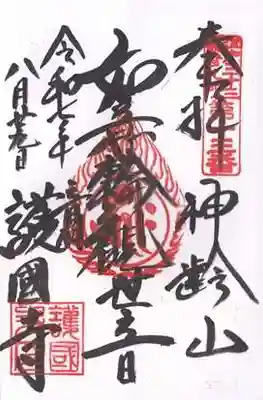 奉拝
神齢山
如意輪觀世音
令和七年
八月
護國寺
護國